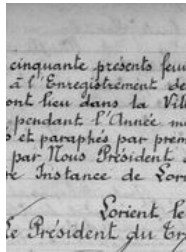 cinquante présents feui
à l'Enregistrement de
ont lieu dans la Vil
pendant l'Année m
s et paraphés par prem
par Nous Président
re Instance de Lor
Lorient le
Le Président du Tr